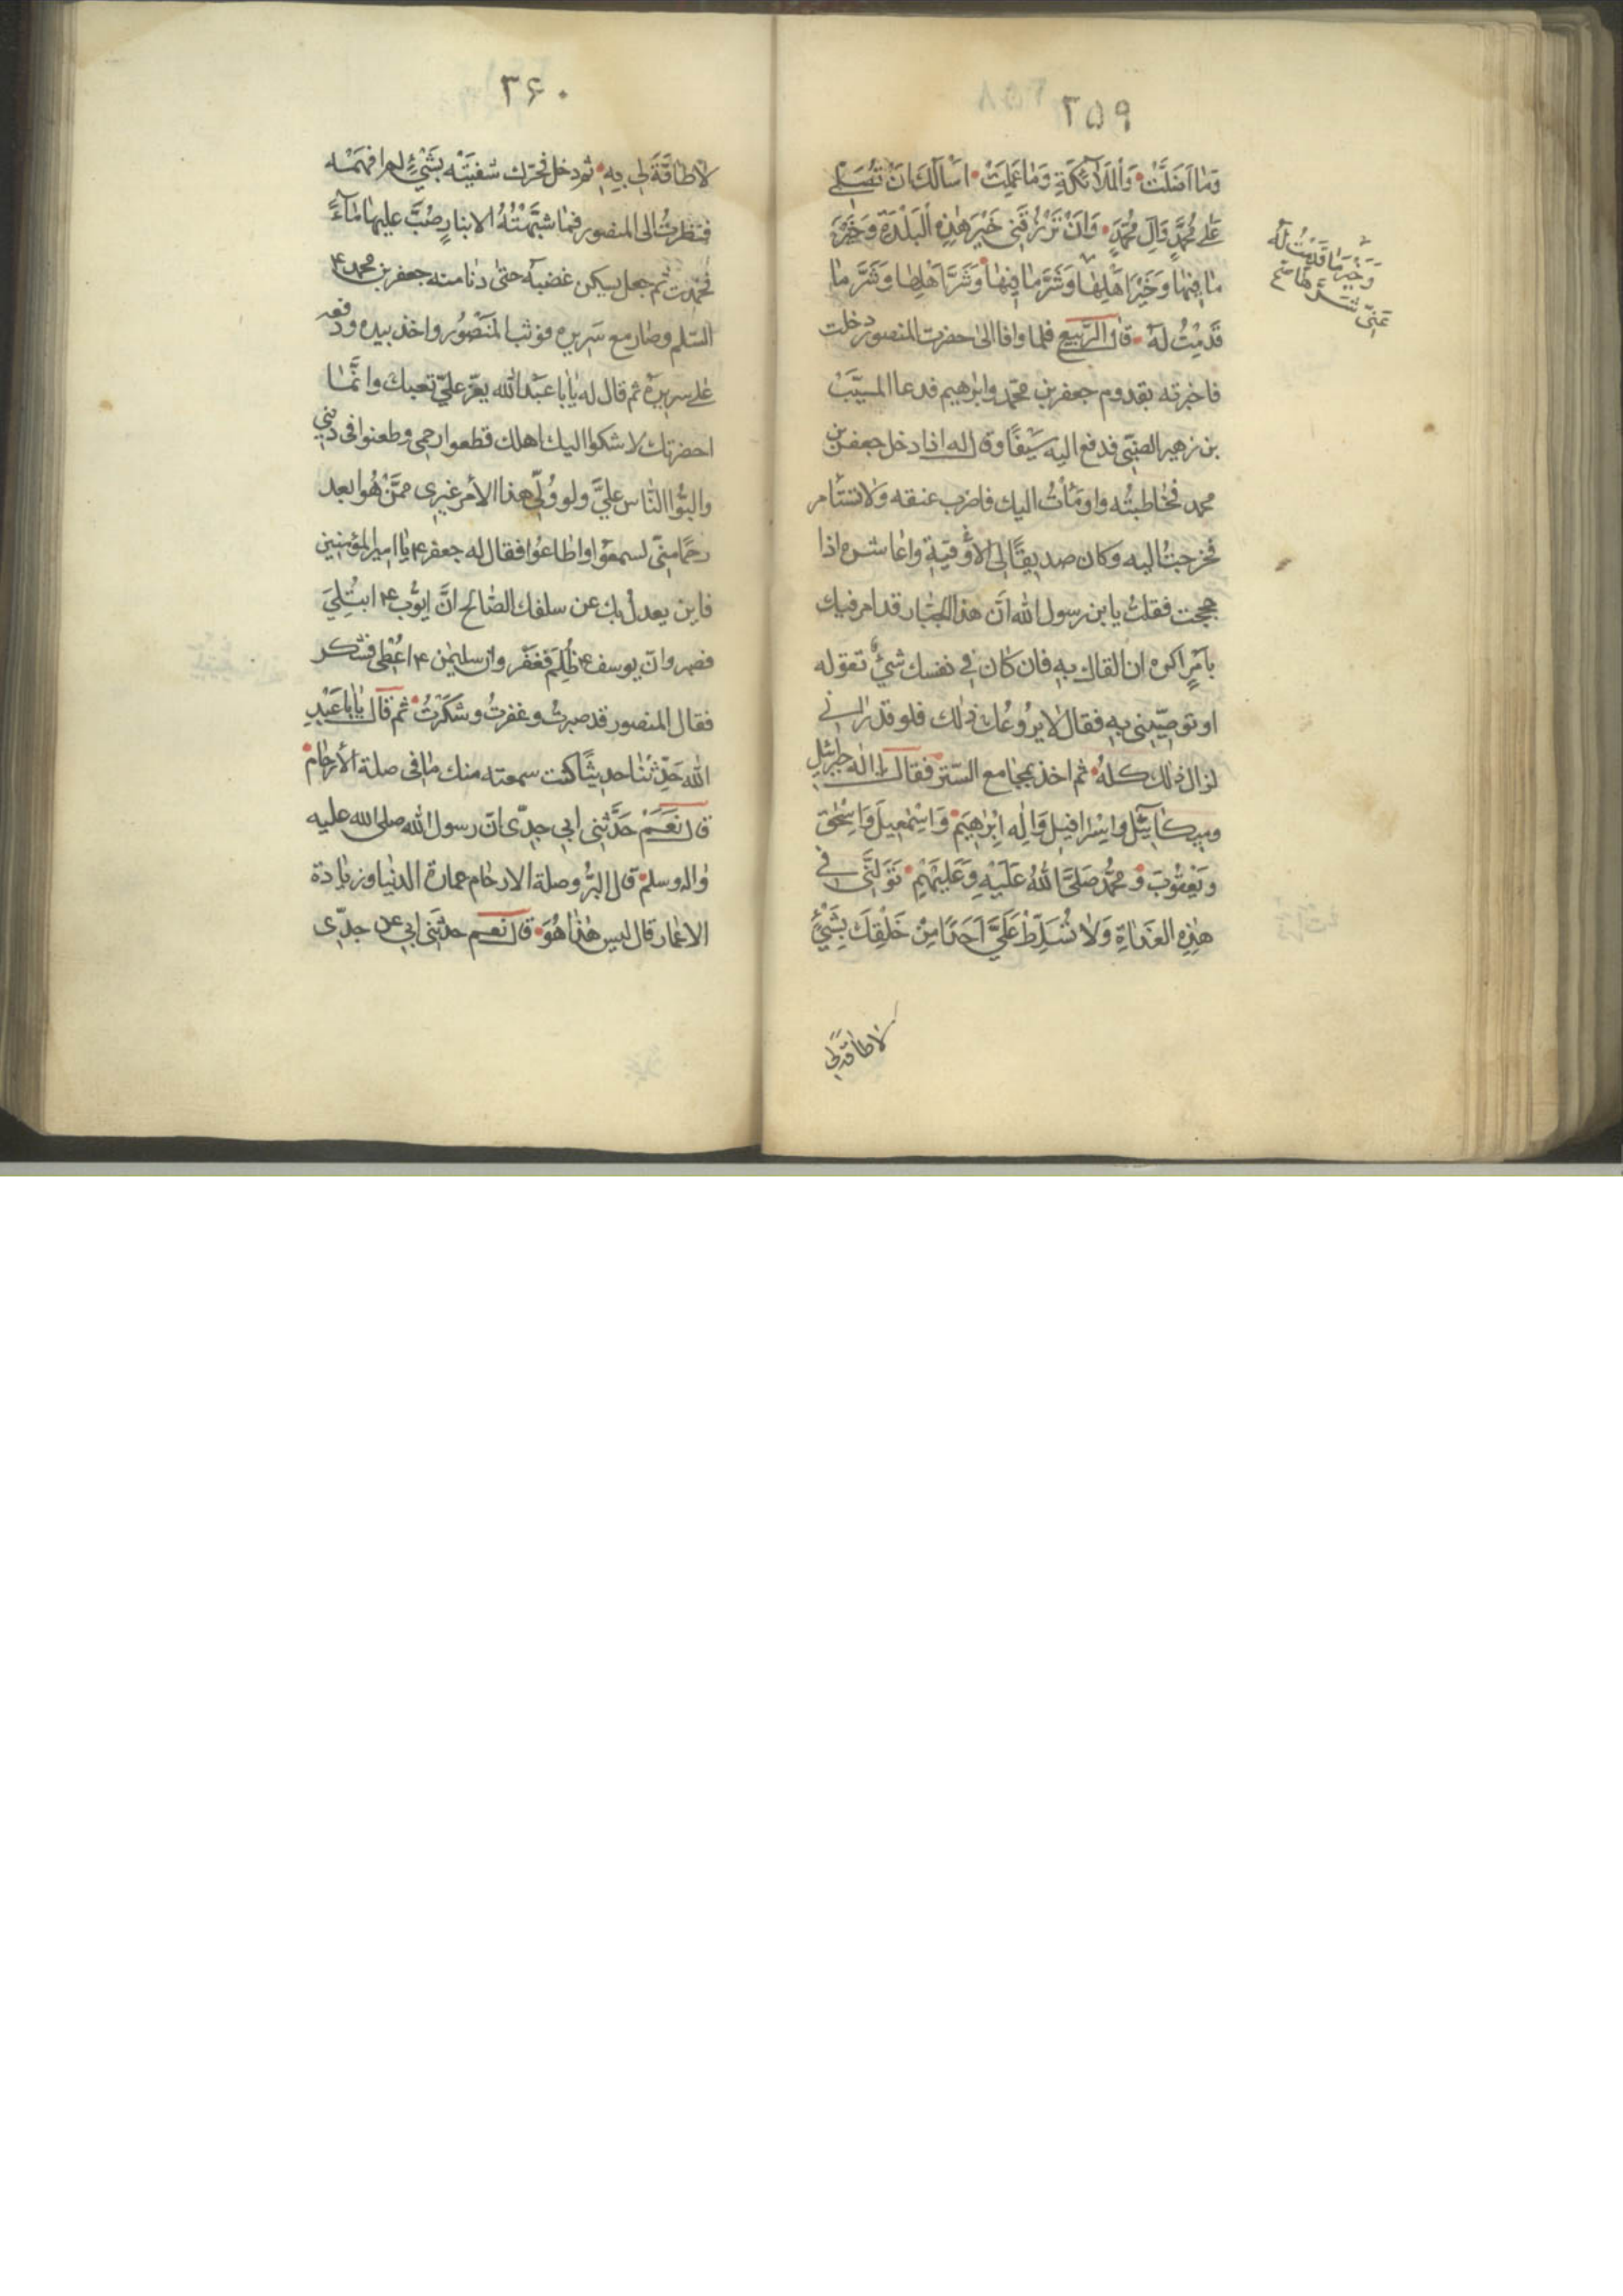 ۳۵۹
وَمَا اَضَلَّتْ وَالْمَلَآئكَةِ وَمَا عَمِلَتْ اَسْاَلُكَ اَنْ تُصَلِّىَ
عَلٰى مُحَمَّدٍ وَآلِ مُحَمَّدٍ وَاَنْ تَرْزُقَنِى خَيْرَ هٰذِهِ الْبَلْدَةِ وَخَيْرَ
مٰا فِيْهٰا وَخَيْرَ اَهْلِهٰا وَشَرَّ مٰا فِيْهٰا وَشَرَّ اَهْلِهٰا وَشَرَّ مٰا
قَدِمْتُ لَهُ قال الرَّبيع فلما وافا الىٰ حضرت المنصور دخلت
فاخبرته بقدوم جعفر بن محمّد وابرٰهيم فدعا المسيّب
بن زهير الضبّى فدفع اليه سَيْفًا وقال له اذا دخل جعفر بن
محمد فخاطبتُه واومَأتُ اليك فاضرب عنقه ولا تستأمر
فخرجتُ اليه وكان صديقًا لى الاقيه واعاشره اذا
حججت فقلتُ يا بن رسول الله انّ هذا الجبّار قد امر فيك
بامرٍ اكره ان القاك به فان كان فى نفسك شئٌ تقوله
او توصّينى به فقال لا يروعُك ذٰلك فلو قد رٰانى
لزال ذٰلك كلهُ ثم اخذ بمجامع السّتر فقال يا الٰه جبرئيل
وميكائيل واسرافيل وَاِلٰه اِبْرٰهِيمَ وَاِسْمٰعِيلَ وَاِسْحٰقَ
وَيَعْقُوْبَ وَمُحَمَّد صَلَّى اللهُ عَلَيْهِ وَعَلَيْهِمْ تَوَلَّنِى فى
هٰذِهِ الغَدَاةِ وَلاٰ تُسَلِّطْ عَلَىَّ اَحَدًا مِنْ خَلْقِكَ بِشَىْءٍ
لاطاقة لى
وَخَيْرَ مٰا قَدِمْتُ لَهُ
۳۶۰
لاٰ طٰاقَةَ لِى بِهِ ثم دخل فحرّك شفيَتْه بشَىْءٍ لم افهَمْه
فنظرتُ الى المنصور فمٰا شبّهْتُهُ الا بنارٍ صُبَّ عليهٰا مٰآءً
فخمدت ثم جعل يسكن غضبه حتىٰ دنا منه جعفر بن محمد ع
السّلم وصٰار مع سَرِيره فوثب المَنْصُور واخذ بيده ورفعه
علٰى سريره ثم قال له يٰا بٰا عَبْد الله يعزّ علىّ تعبك وانَّمٰا
احضرتك لاشكوا اليك اهلك قطعوا رحمى وطعنوا فى دينى
والبّوا النّاس علىَّ ولو وُلّى هذا الأمر غيرى ممَّنْ هُوَ ابعد
رحمًا مِنّى لسمعوا واطٰاعُوا فقال له جعفر ع يٰا امير المؤمنين
فاين يعدل بك عن سلفك الصّٰالح انّ ايوّب ع ابتُلِىَ
فصبر وانّ يوسف ع ظُلِمَ فغفر وان سليمٰن ع اعُطى فشكر
فقال المنصور قد صبرتُ وغفرتُ وشكَرْتُ ثم قال يٰا بٰا عَبْدِ
الله حَدِّثْنٰا حديثًا كنت سمعته منك مٰا فى صلة الأرحٰام
قال نَعَمْ حَدَّثنى ابى جدّى انّ رسول الله صلى الله عليه
وٰاله وسلم قال البِرُّ وصلة الارحٰام عمارة الدنيا وزيٰادة
الاعمٰار قال ليس هٰذٰا هُوَ قال نعم حدثنى ابى عن جدّى